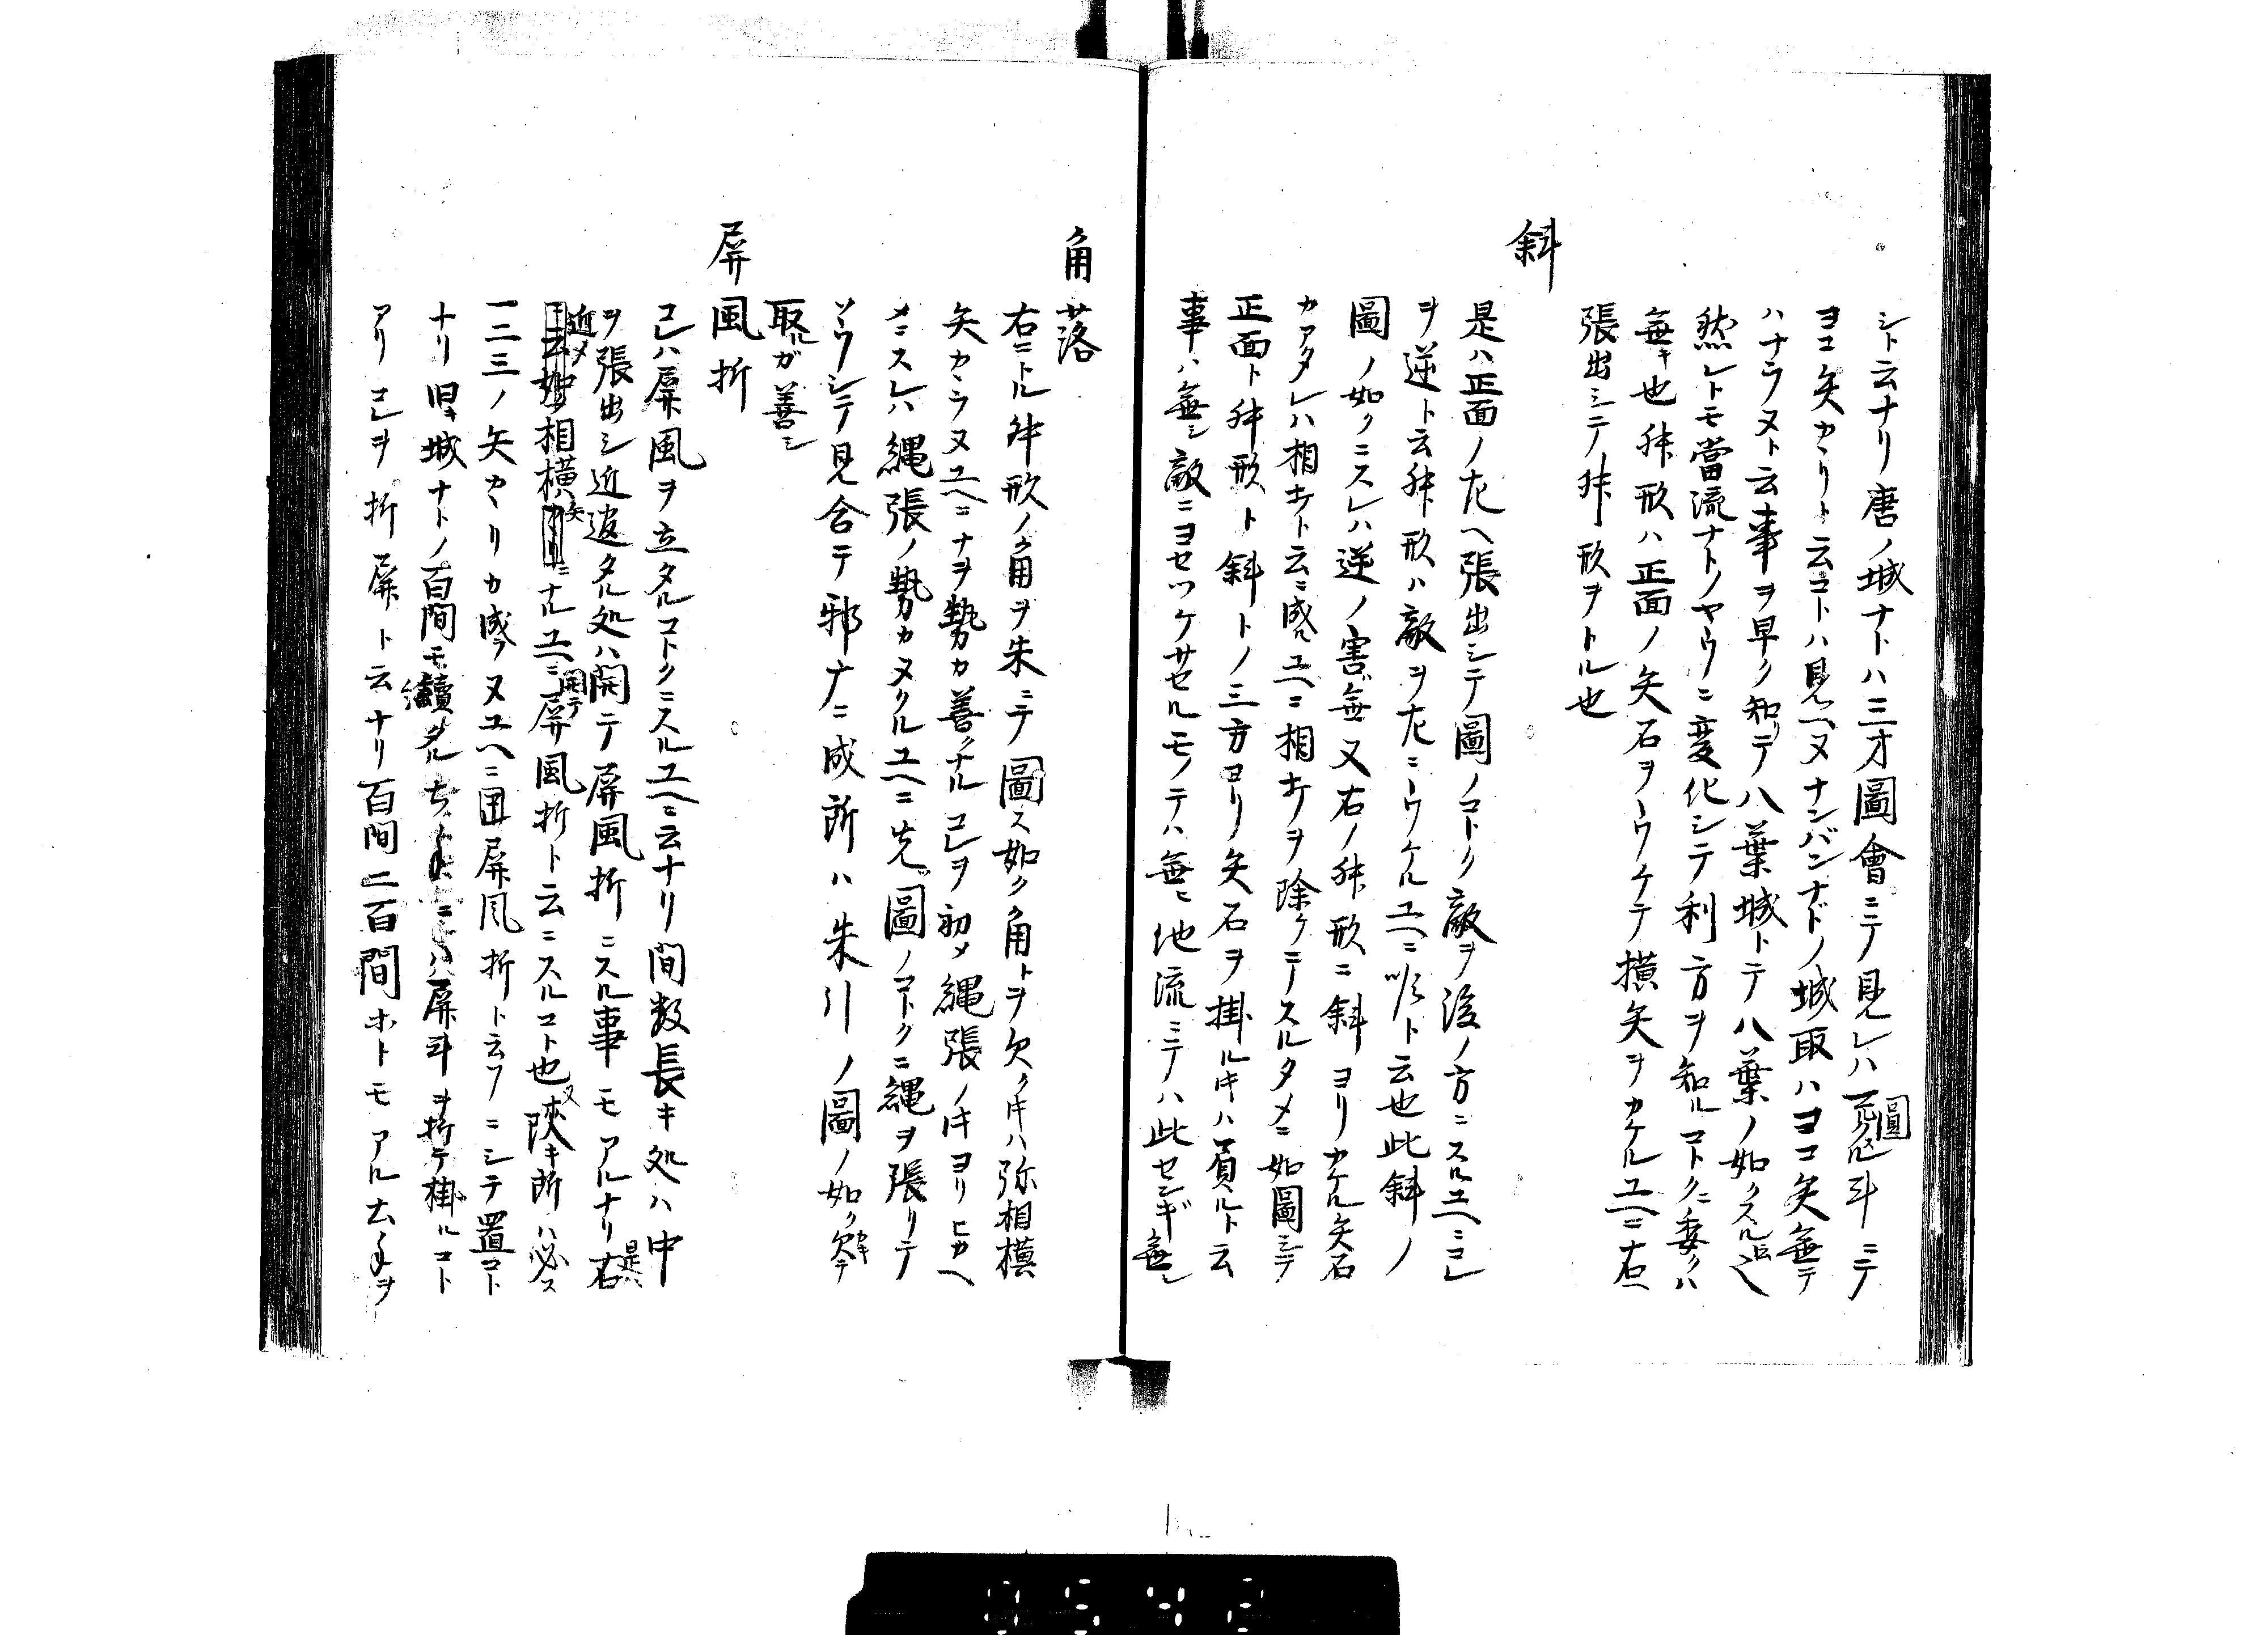 シト云ナリ唐ノ城ナトハ三才圖會ニテ見レハ圓斗ニテ
ヨコ矢カヽリト云コトハ見ヘヌナンバンナドノ城取ハヨコ矢無テ
ハナラヌト云事ヲ早ク知テ八葉城トテ八葉ノ如クスル
然レトモ當流ナトノヤウニ変化シテ利方ヲ知ルコトクニ委クハ
無キ也舛形ハ正面ノ矢石ヲウケテ横矢ヲカケルユヘニ右ヘ
張出シテ舛形ヲトル也
斜
是ハ正面ノ左ヘ張出シテ圖ノコトク敵ヲ後ノ方ニスルユヘニコレ
ヲ逆ト云舛形ハ敵ヲ左ニウケルユヘニ順ト云也此斜ノ
圖ノ如クニスレハ逆ノ害無又右ノ舛形ニ斜ヨリカケル矢石
カアタレハ相打ト云ニ成ユヘニ相打ヲ除ケニスルタメニ如圖シテ
正面ト舛形ト斜トノ三方ヨリ矢石ヲ掛ル片ハ負ルト云
事ハ無シ敵ニヨセツケサセルモノテハ無シ他流ニテハ此センギ無シ
角落
右ニトル舛形ノ角ヲ朱ニテ圖ス如ク角トヲ欠ク片ハ弥相横
矢カヽラヌユヘニナヲ勢カ善クナル コレヲ初メ縄張ノ片ヨリヒカヘ
メニスレハ縄張ノ勢カヌクルユヘニ先圖ノコトクニ縄ヲ張リテ
ソウシテ見合テ邪广ニ成所ハ朱引ノ圖ノ如ク欠キテ
取ルガ善シ
屏風折
コレハ屏風ヲ立タルコトクニスルユヘニ云ナリ間数長キ処ハ中
ヲ張出シ近過タル処ハ開テ屏風折ニスル事モアルナリ右是ハ
近メ相横矢ニナルユヘニ開テ屏風折ト云ニスルコト也又陜キ所ハ必ス
一二三ノ矢カヽリカ成ヌユヘニ囲屏風折ト云フニシテ置コト
ナリ旧キ城ナトノ百間モ續タル ニハ屏斗ヲ折テ掛ルコト
アリコレヲ折屏ト云ナリ百間二百間ホトモアル土手ヲ